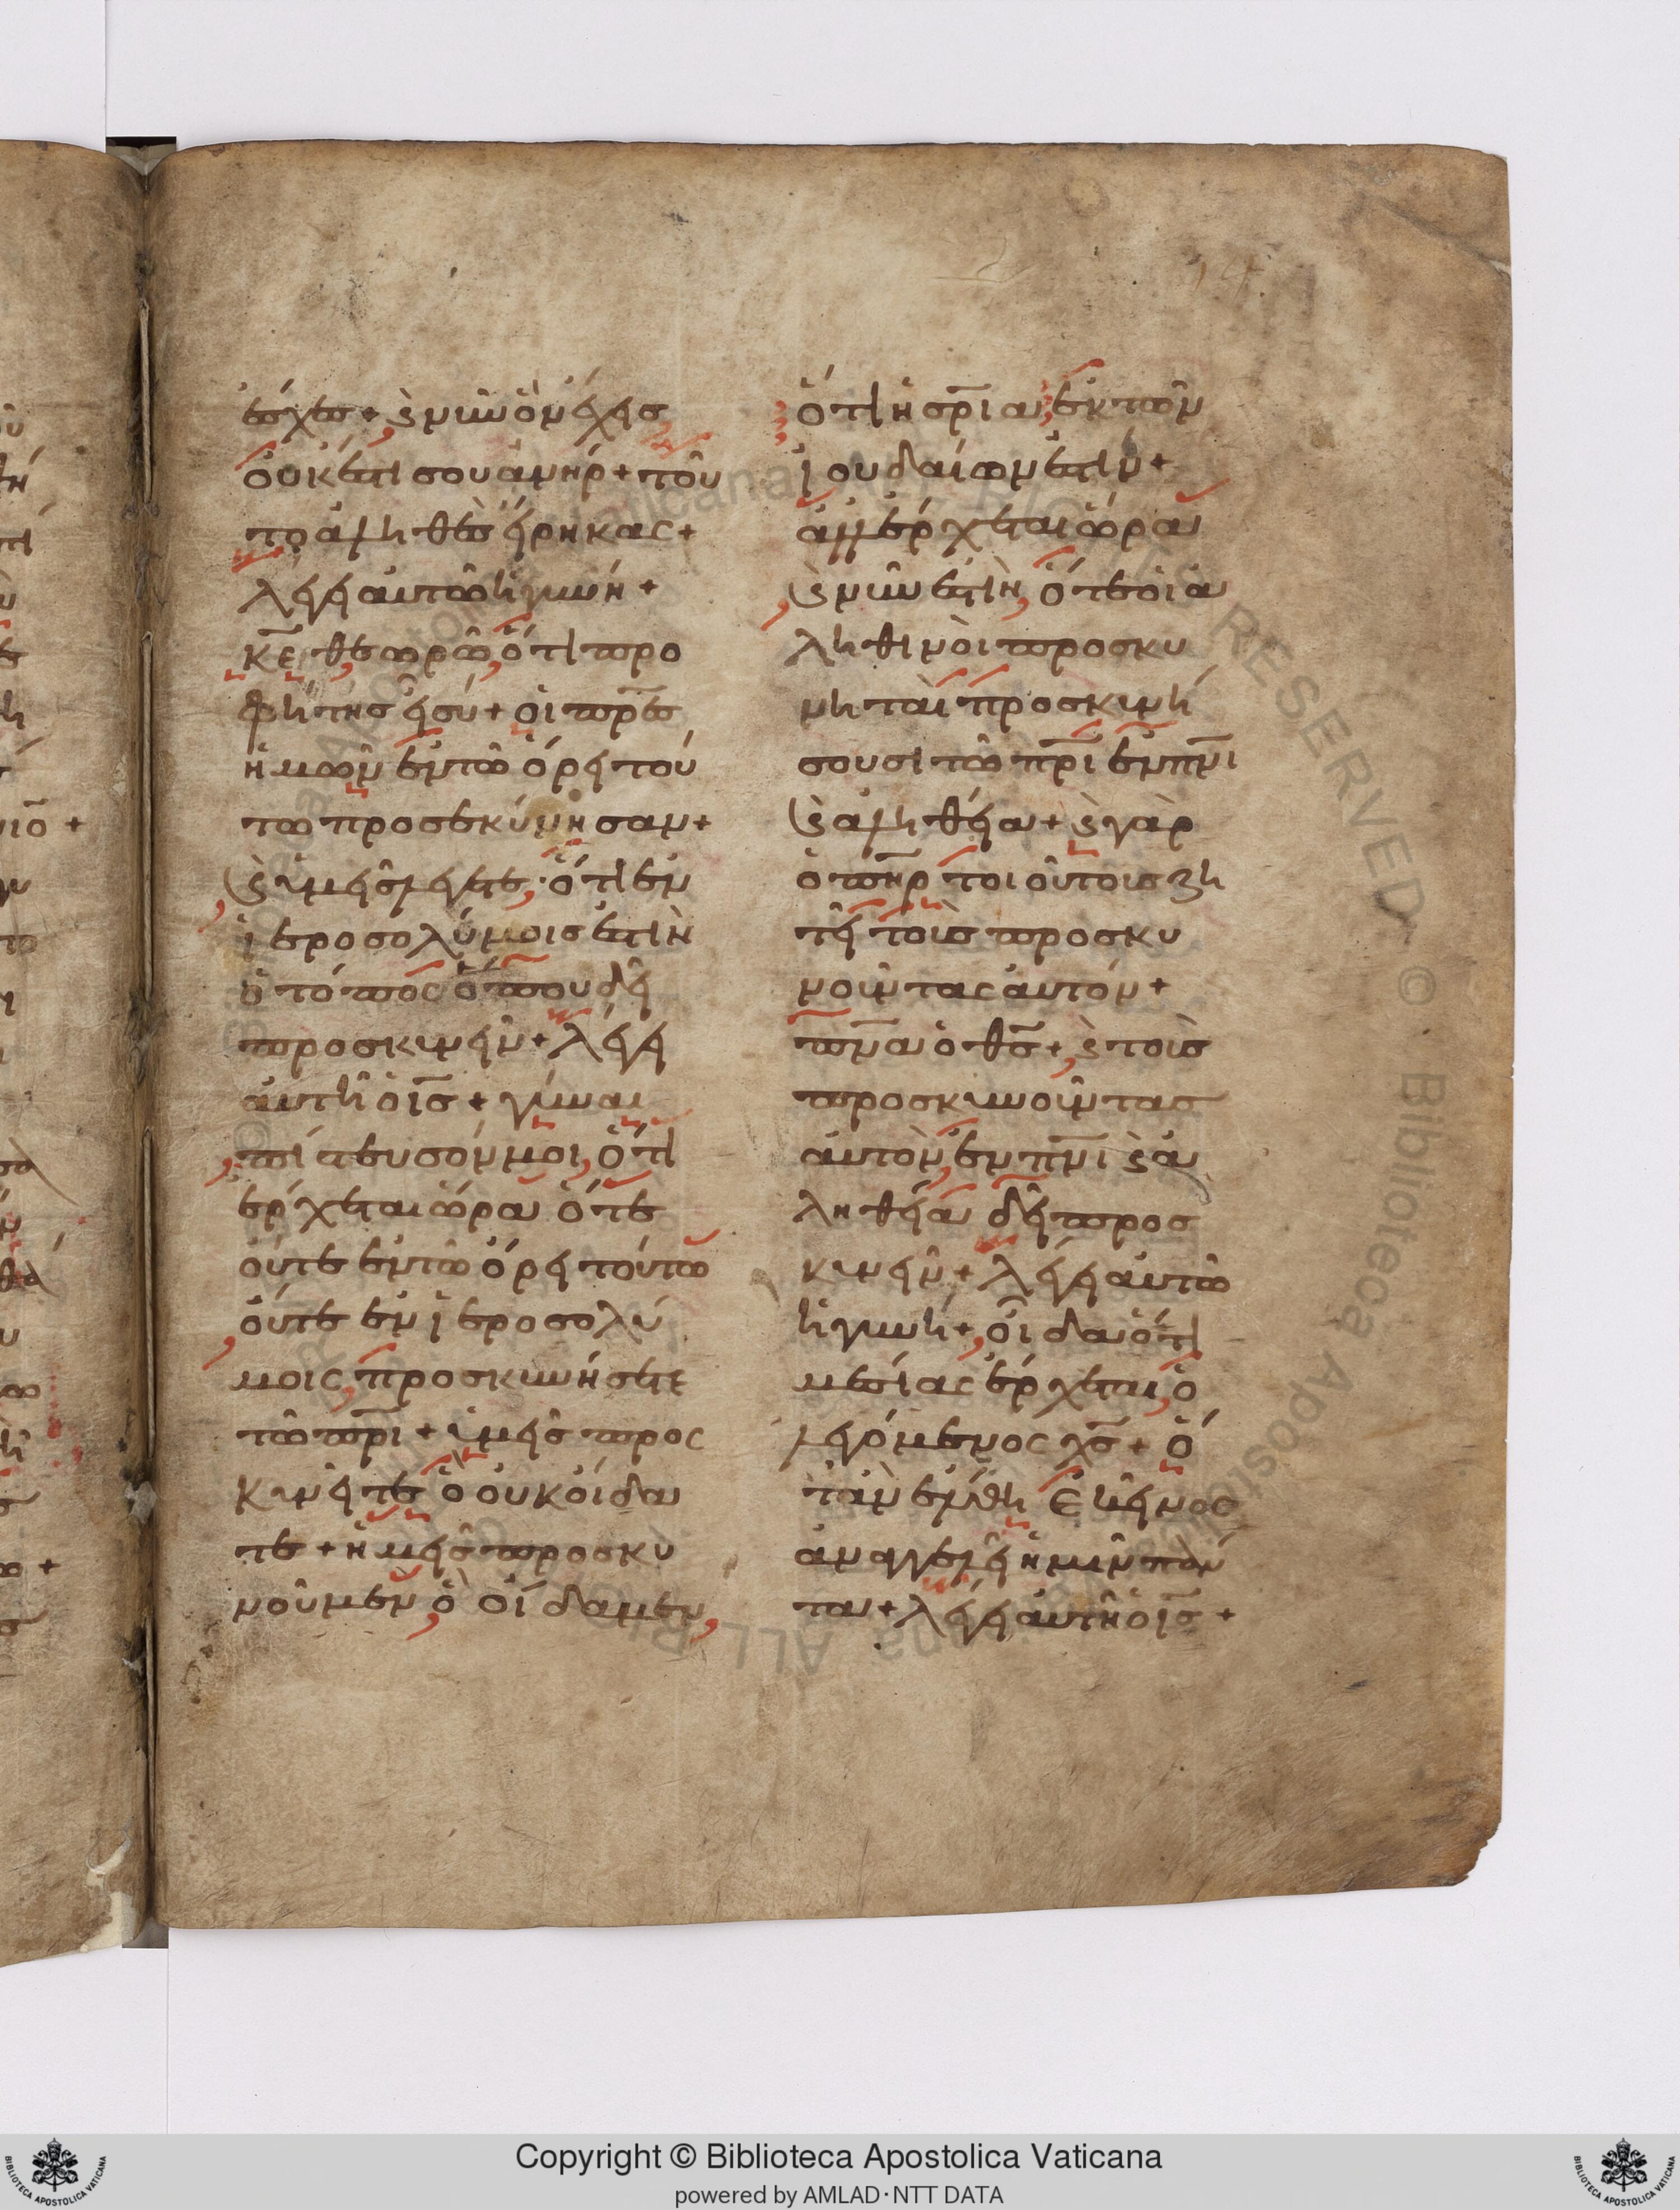 ἔσχες + ϗ νῦν ὃν ἔχεις
οὐκ ἔστι σου ἀνήρ + τοῦ
το ἀληθὲς εἴρηκας +
λέγει αὐτῶ ἡ γυνή +
κ̅ε̅ θεωρῶ ὅτι προ
φήτης εἶ σύ + οἱ πρ̅ες
ἡμῶν ἐν τῶ ὄρει τού
τω προσεκύνησαν +
ϗ ὑμεῖς λέγετε · ὅτι ἐν
ἱεροσολύμοις ἐστὶν
ὁ τόπος ὅπου δεῖ
προσκυνεῖν + λέγει
αὐτῆ ὁ ι̅ς̅ + γύναι
πίστευσόν μοι, ὅτι
ἔρχεται ὥρα ὅτε
οὔτε ἐν τῶ ὄρει τούτω
οὔτε ἐν ἱεροσολύ
μοις προσκυνήσετε
τῶ πρ̅ι + ὑμεῖς προς
κυνεῖτε ὃ οὐκ οἴδα
τε + ἡμεῖς προσκυ
νοῦμεν ὃ οἴδαμεν,
ὅτι ἡ σρ̅ια ἐκ τῶν
ἰουδαίων ἐστίν +
ἀλλ ἔρχεται ὥρα
ϗ νῦν ἐστὶν, ὅτε οἱ ἀ
ληθινοὶ προσκυ
νηταὶ προσκυνή
σουσι τῶ πρ̅ι ἐν πν̅ι
ϗ ἀληθεία + ϗ γὰρ
ὁ πη̅ρ τοιούτοις ζη
τεῖ τοὺς προσκυ
νοῦντας αὐτόν +
πν̅α ὁ θ̅ς̅ + ϗ τοὺς
προσκυνοῦντας
αὐτὸν, ἐν πν̅ι ϗ ἀ
ληθεία δεῖ προσ
κυνεῖν + λέγει αὐτῶ
ἡ γυνή + οἶδα ὅτι
μεσίας ἔρχεται, ὁ
λεγόμενος χ̅ς̅ + ὅ
τὰν ἔλθη ἐκεῖνος
ἀναγγελεῖ ἡμῖν πάν
τα + λέγει αὐτῆ ὁ ι̅ς̅ +
Copyright © Biblioteca Apostolica Vaticana
powered by AMLAD·NTT DATA